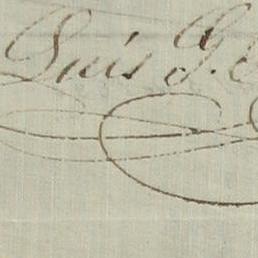 Luis G.